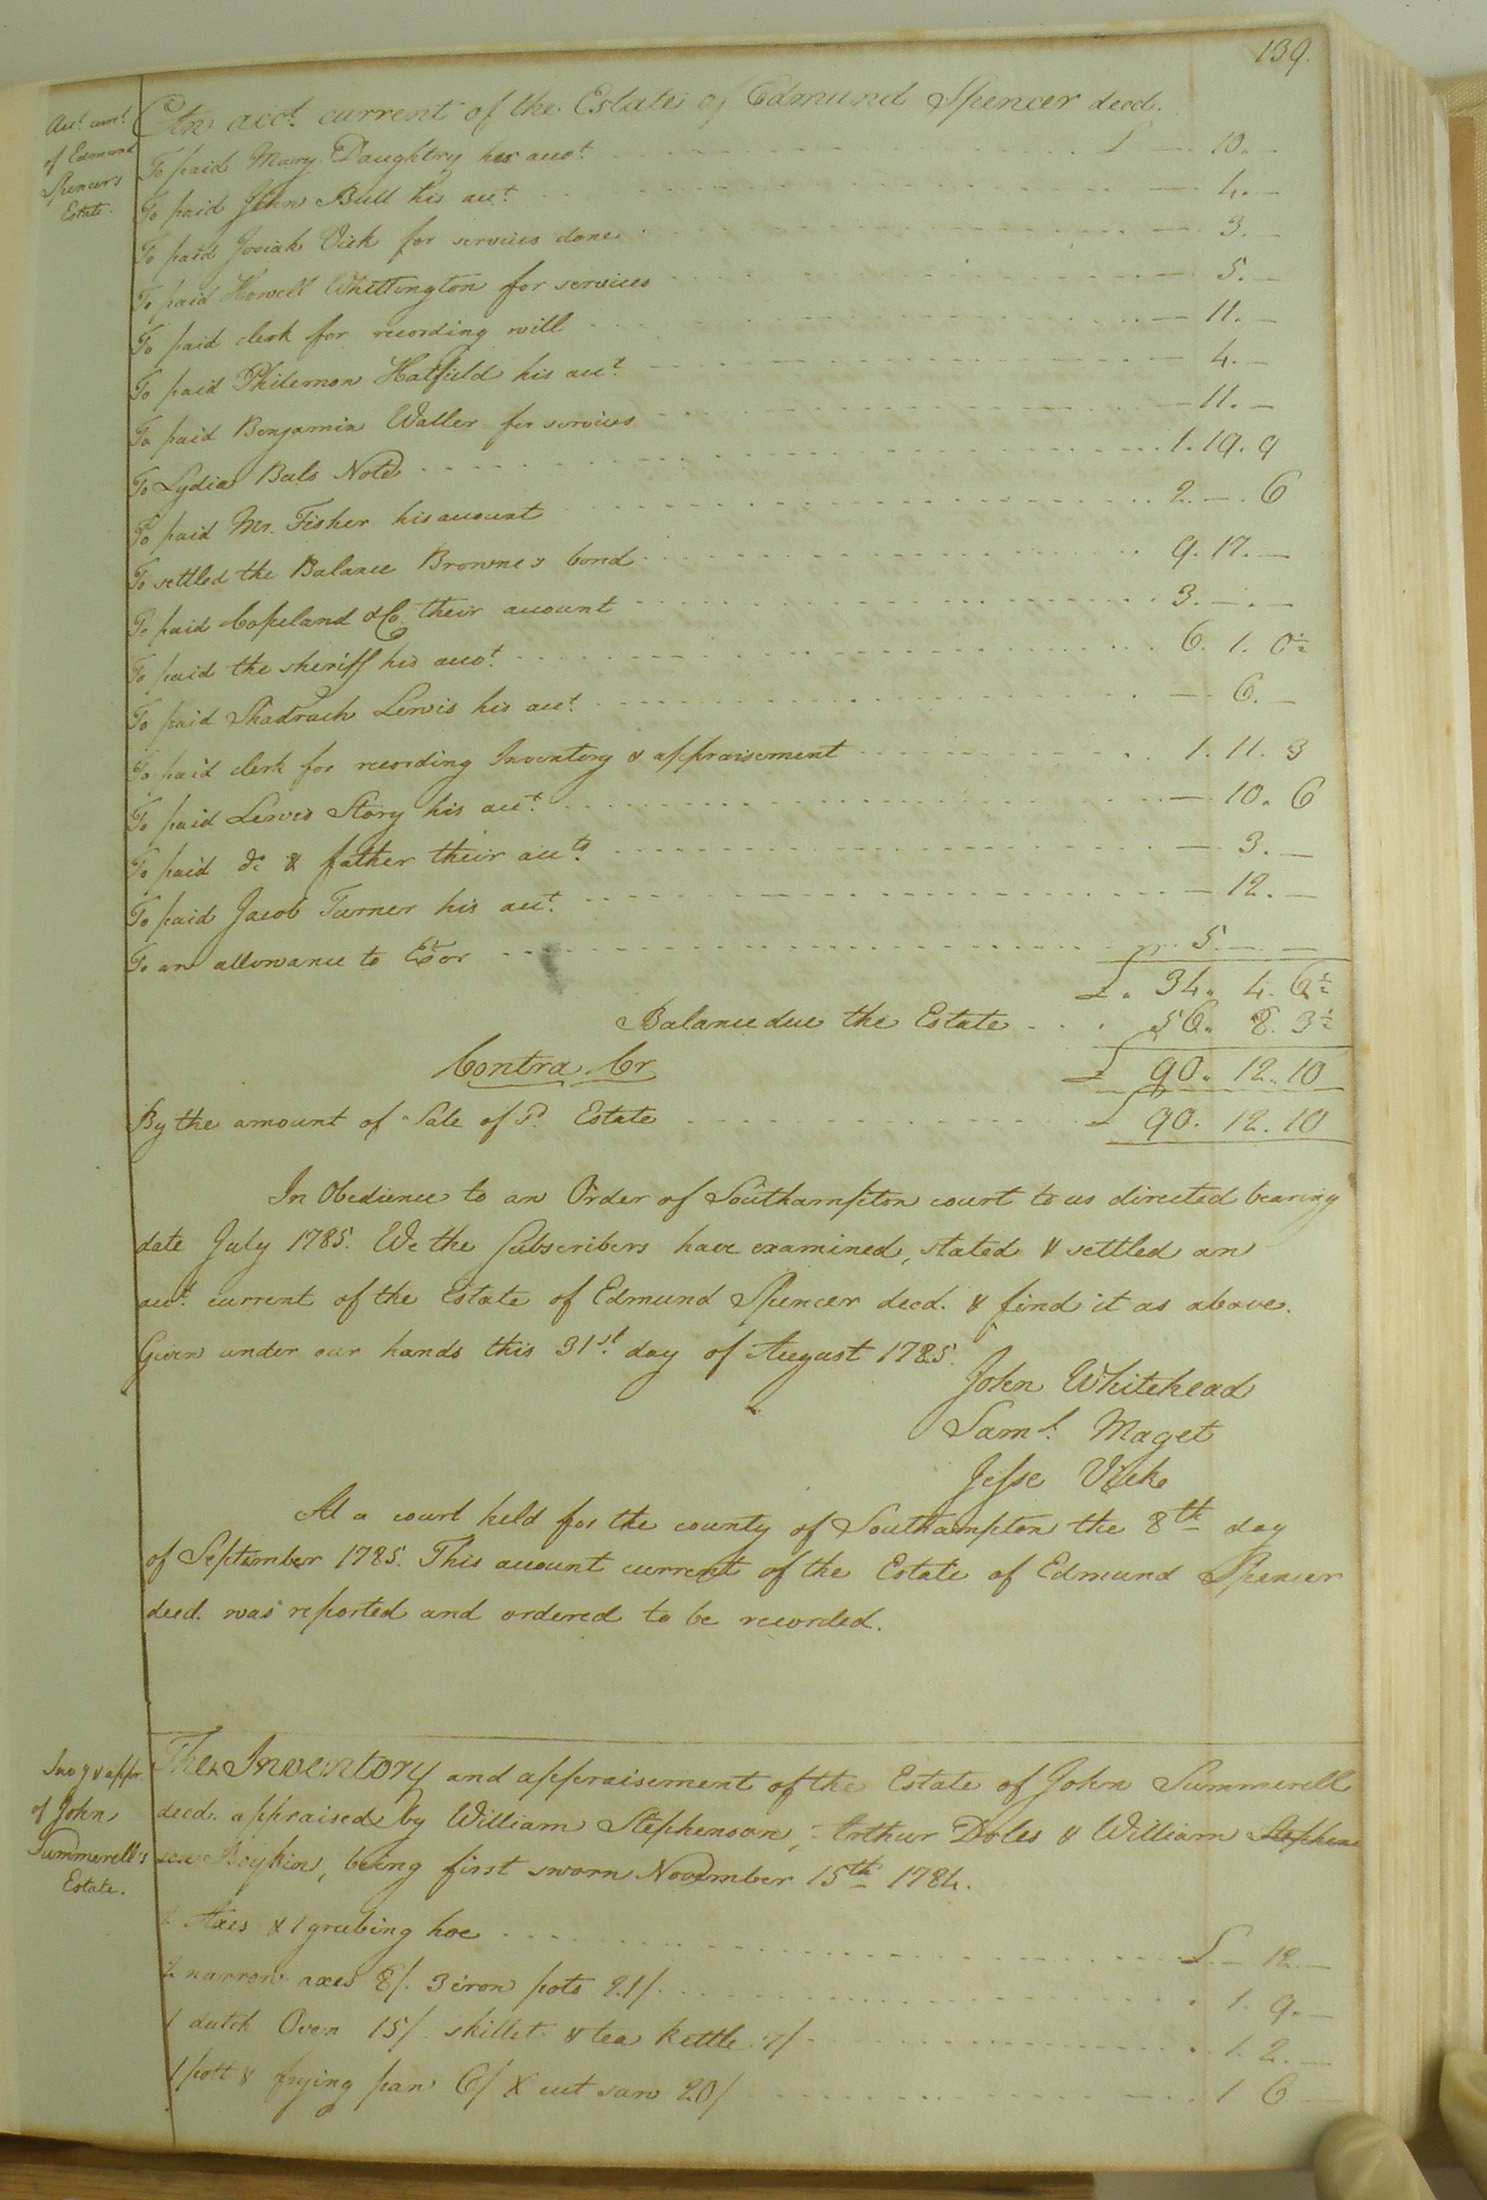 139.
An acct. current of the Estate of Edmund Spencer decd.
Acct. curnt.
of Edmund
Spencer's
Estate.
To paid Mary Daughtry her accot. £ — 10. -
To paid John Bull his acct. — 4. —
To paid Josiah Vick for services done — 3. —
To paid Howell Whittington for services — 5. —
To paid clerk for recording will — 11. —
To paid Philemon Hatfield his acct. — 4. —
To paid Benjamin Waller for services — 11. —
To Lydia Buls Note 1. 19. 9
To paid Mr. Fisher his account 2. — . 6
To settled the Balance Browne's bond 9. 17. —
To paid Copeland & Co. their account 3. — . —
To paid the sheriff his accot. 6. 1. 0½
To paid Shadrach Lewis his acct. — 6. —
To paid clerk for recording Inventory & appraisement 1. 11. 3
To paid Lewis Story his acct. — 10. 6
To paid do. & father their accts. — 3. —
To paid Jacob Turner his acct. — 12. —
To an allowance to Exor 5. — —
£. 34. 4. 6½
Balance due the Estate 56. 8. 3½
Contra Cr £ 90. 12. 10
By the amount of Sale of Sd. Estate £ 90. 12. 10
In Obedience to an Order of Southampton court to us directed bearing
date July 1785. We the Subscribers have examined, stated & settled an
acct. current of the Estate of Edmund Spencer decd. & find it as above.
Given under our hands this 31st. day of August 1785.
John Whitehead
Saml. Maget
Jesse Vick
At a court held for the county of Southampton the 8th day
of September 1785. This account current of the Estate of Edmund Spencer
decd. was reported and ordered to be recorded.
Invy & appr.
of John
Summerell's
Estate.
The Inventory and appraisement of the Estate of John Summerell
decd. appraised by William Stephenson, Arthur Doles & William Stephen
son Boykin, being first sworn November 15th 1784.
Axes & 1 grubing hoe £ — 12. —
2 narrow axes 8/. 3 iron pots 21/. 1. 9. —
1 dutch Oven 15/. skillet & tea kettle 7/ 1. 2. —
1 pott & frying pan 6/ X cut saw 20/ 1 6 —